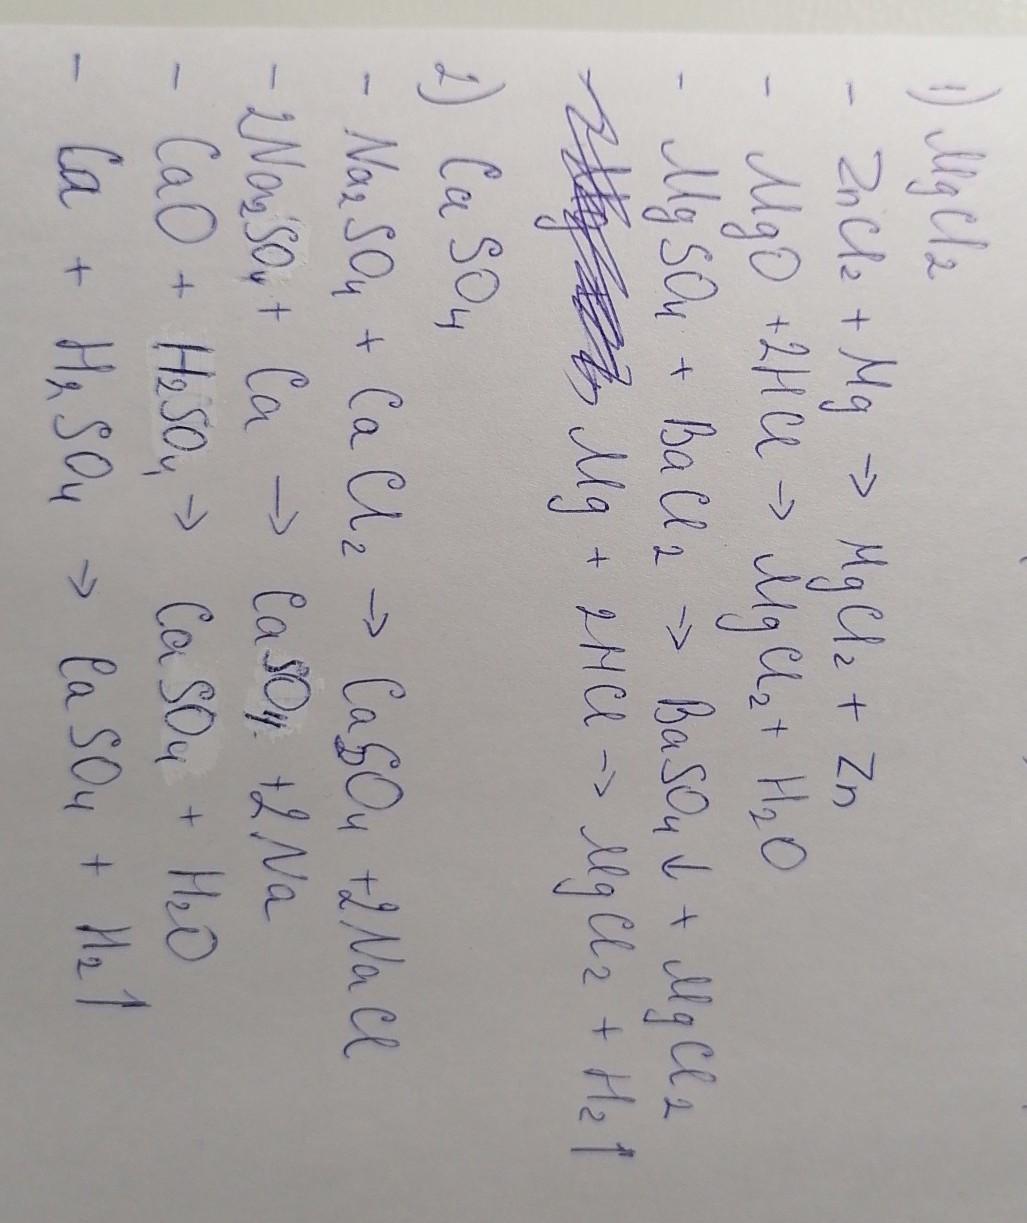 1) MgCl2
- ZnCl2 + Mg → MgCl2 + Zn
- MgO + 2HCl → MgCl2 + H2O
- MgSO4 + BaCl2 → BaSO4↓ + MgCl2
- Mg + 2HCl → MgCl2 + H2↑
2) CaSO4
- Na2SO4 + CaCl2 → CaSO4 + 2NaCl
- 2Na2SO4 + Ca → CaSO4 + 2Na
- CaO + H2SO4 → CaSO4 + H2O
- Ca + H2SO4 → CaSO4 + H2↑